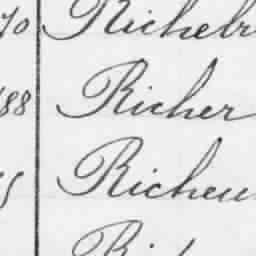 70 Richebr
188 Richer
Richeu